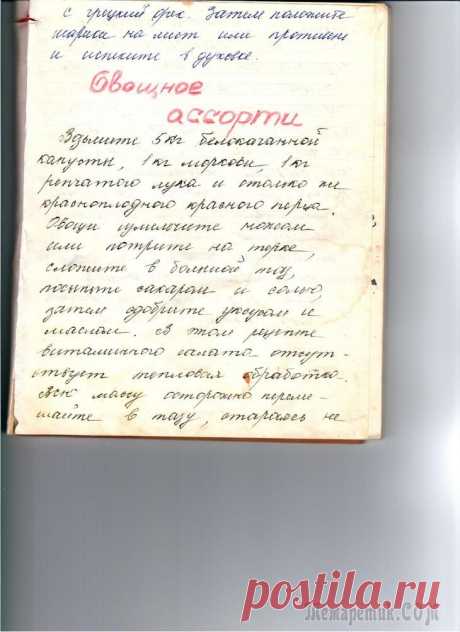 с грецкий орех. Затем положите
шарики на лист или противень
и испеките в духовке.
Овощное
ассорти
Возьмите 5 кг белокачанной
капусты, 1 кг моркови, 1 кг
репчатого лука и столько же
красноплодного красного перца.
Овощи измельчите ножом
или потрите на терке,
сложите в большой таз,
посыпьте сахаром и солью,
затем сдобрите уксусом и
маслом. В этом рецепте
витаминного салата отсут-
ствует тепловая обработка.
Всю массу осторожно переме-
шайте в тазу, стараясь не
postila.ru
©Мемаретик.COM